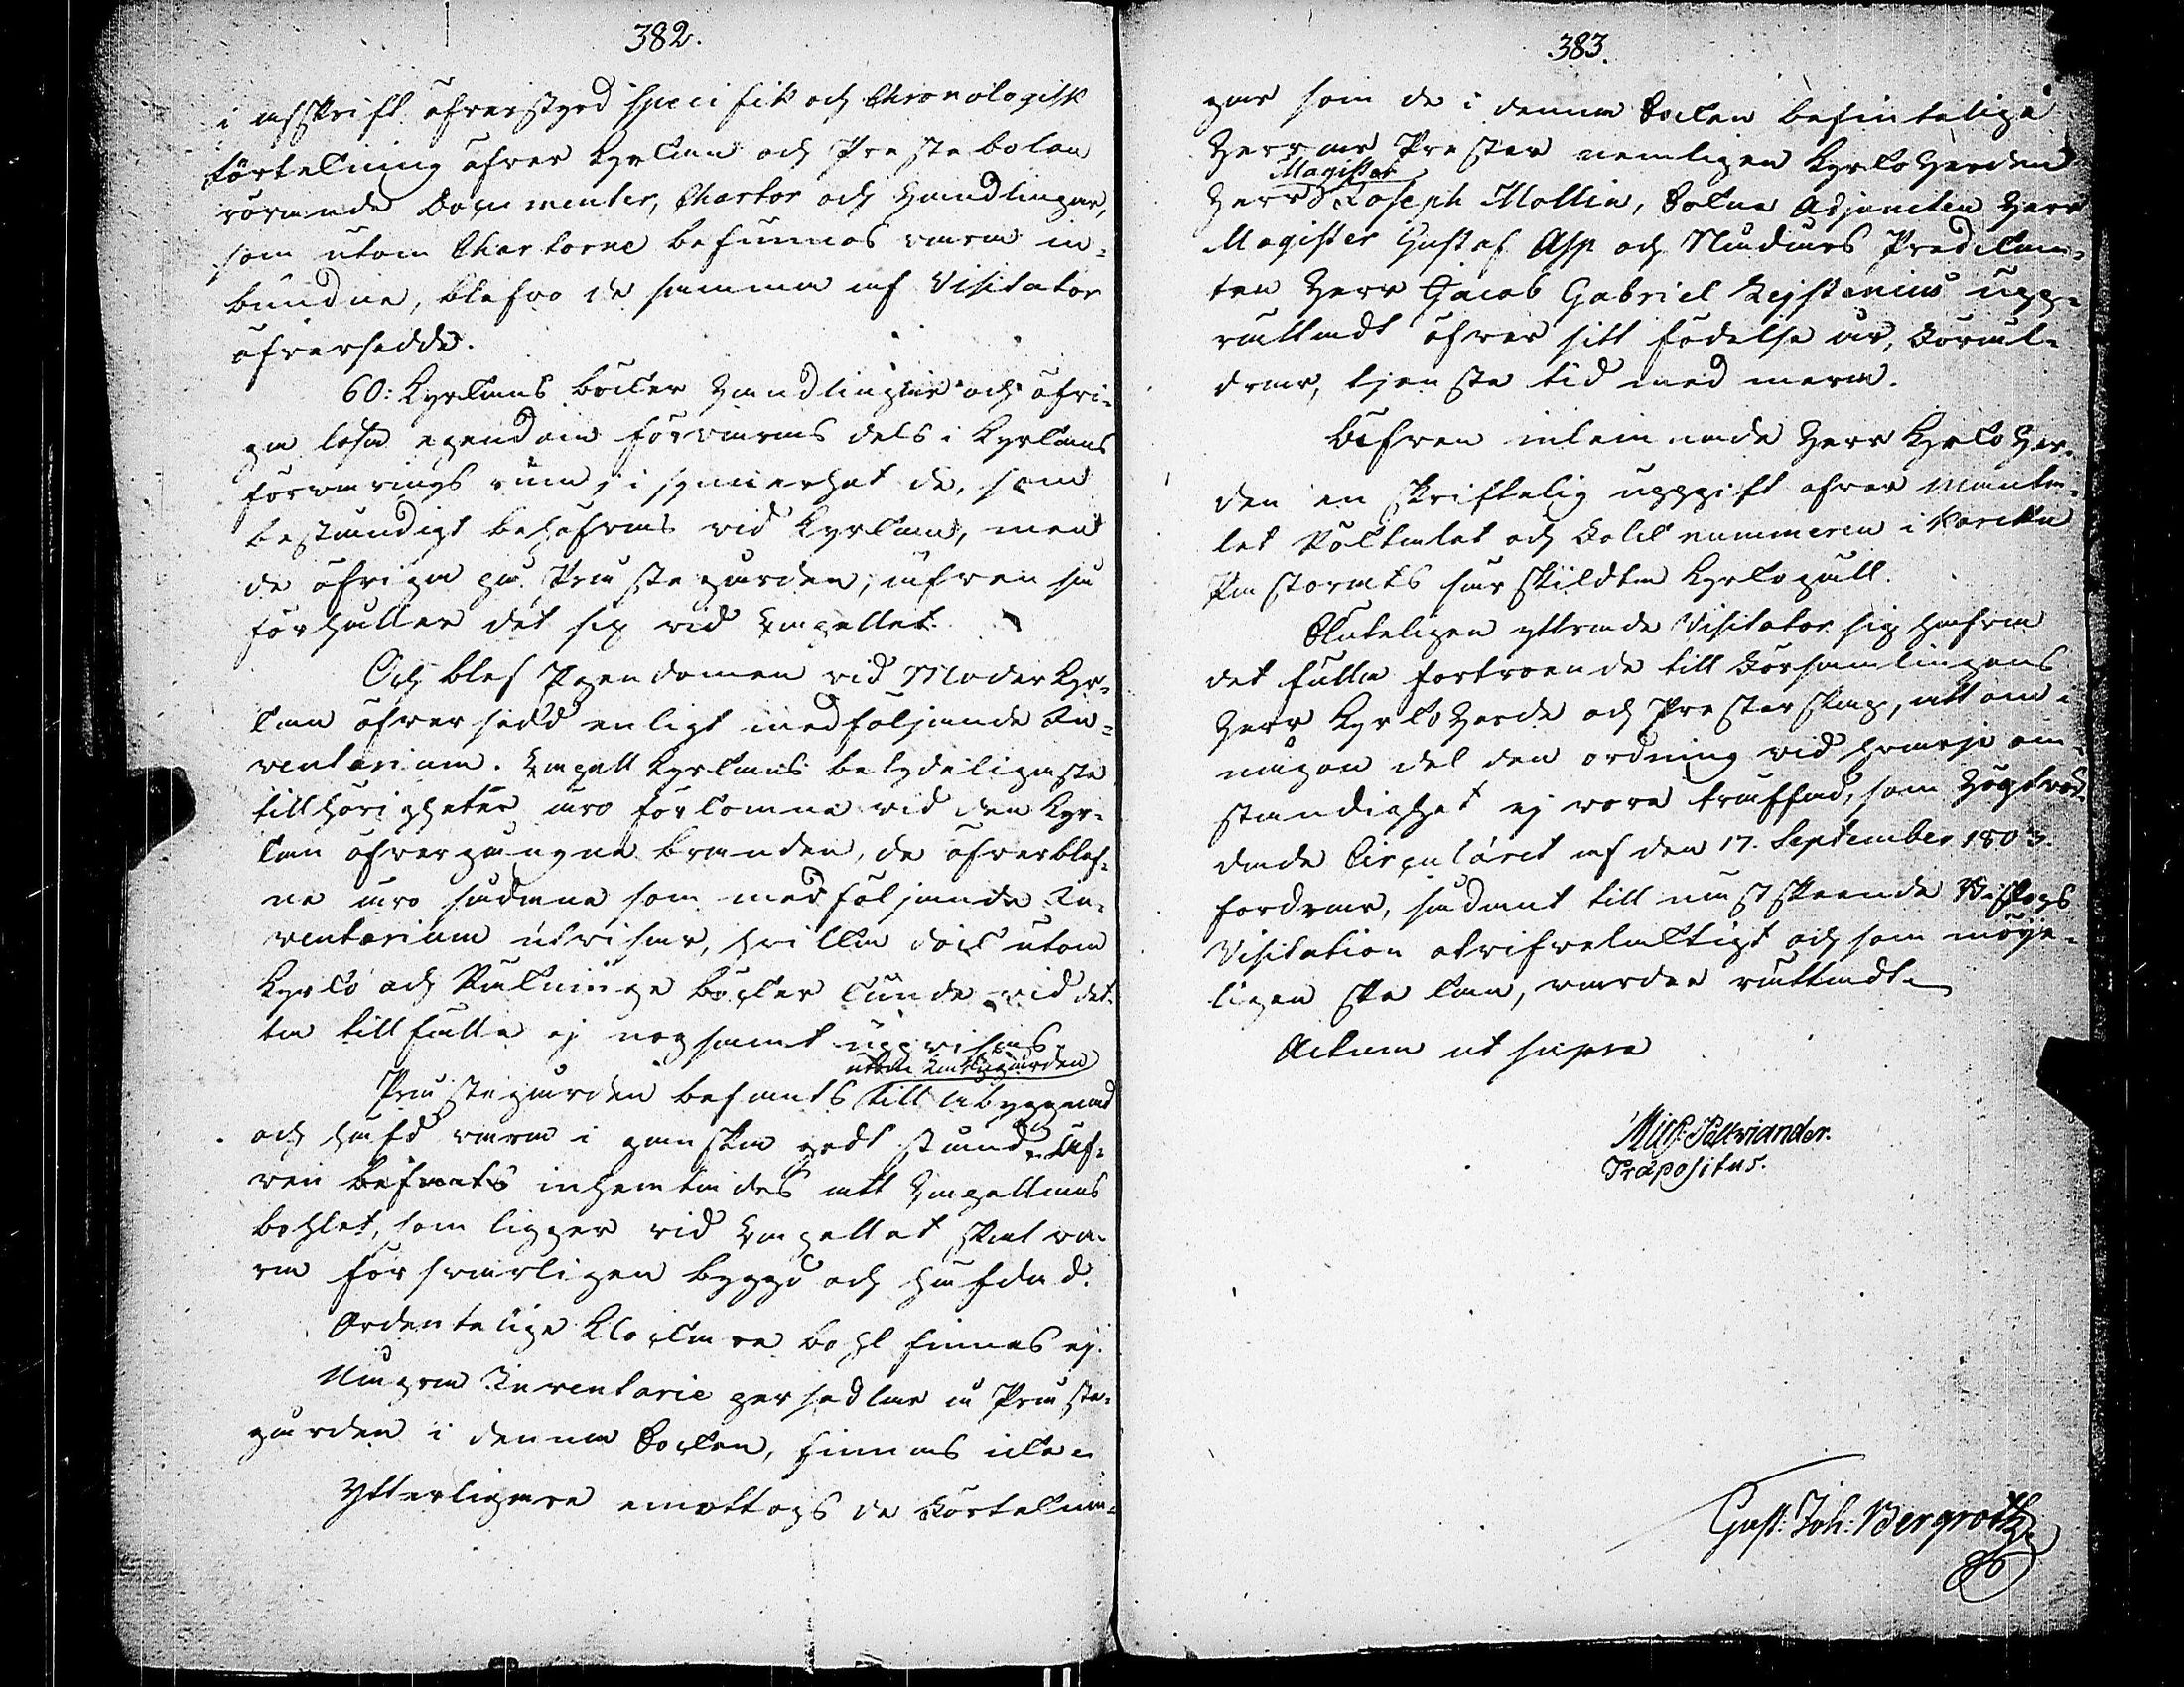 382.
i afskrift öfverstyrd specifik och Chronologisk
förtekning öfver Kyrkans och Prestebolen
rörande Documenter, Chartor och Handlingar,
som utom Chartorne befunnos vara in-
bundne, blefvo de samma af Visitator
öfversedde.
60: Kyrkans böcker Handlingar och öfri-
ga lösa egendom förvaras dels i Kyrkans
förvarings rum, i synnerhet de, som
beständigt behöfvas vid Kyrkan, men
de öfriga på Prästegården; äfven så
förhåller det sig vid Capellet.
Och blef Egendomen vid Moder Kyr-
kan öfversedd enligt medföljande In-
ventarium. Capell Kyrkans betydeligaste
tillhörigheter äro förkomne vid den Kyr-
kan öfvergångne branden, de öfverblef-
ne äro sådane som medföljande In-
ventarium utvisar, hvilka dock utom
Kyrko och Räkninge böcker kunde vid det-
ta tillfälle ej nogsamt uppvisas.
utom
Prästegården befants till åbyggnad
och häfd vara i ganska godt stånd. Äf-
ven befants inhemtades att Capellans
bohlet, som ligger vid Capellet skal va-
ra försvarligen bygdt och häfdad.
Ordentelige Klockare bohl finnes ej.
Några Inventarie persedlar å Präste-
gården i denna Socken, finnas icke.
Ytterligare emottogs de Förteknin-
383.
gar som de i denna Socken befintelige
Herrar Prester nemligen Kyrko Herden
Magister
Herr Joseph Mollin, Sockne Adjuncten Herr
Magister Gustaf Asp och Nådårs Predikan-
ten Herr Jacob Gabriel Kejstenius upp-
rättadt öfver sitt födelse år, Föräl-
drar, tjenste tid med mera.
Äfven inlemnade Herr Kyrko Her-
den en skriftelig uppgift öfver Manta-
let Röktalet och Folk nummeren i
Pastorats särskildta Kyrkogäll.
Sluteligen yttrade Visitator sig hafva
det fulla förtroende till Församlingens
Herr Kyrko Herde och Presterskap, att om i
någon del den ordning vid hvarje om-
ständighet ej vore träffad, som Högtvör-
dade Circuläret af den 17. September 1803.
fordrar, sådant till näst skeende Biskops
Visitation otvifvelaktigt och som möje-
ligen ske kan, varder rättadt.
Actum ut supra
Mich: Pallviander.
Præpositus.
Gust: Joh: Bergroth